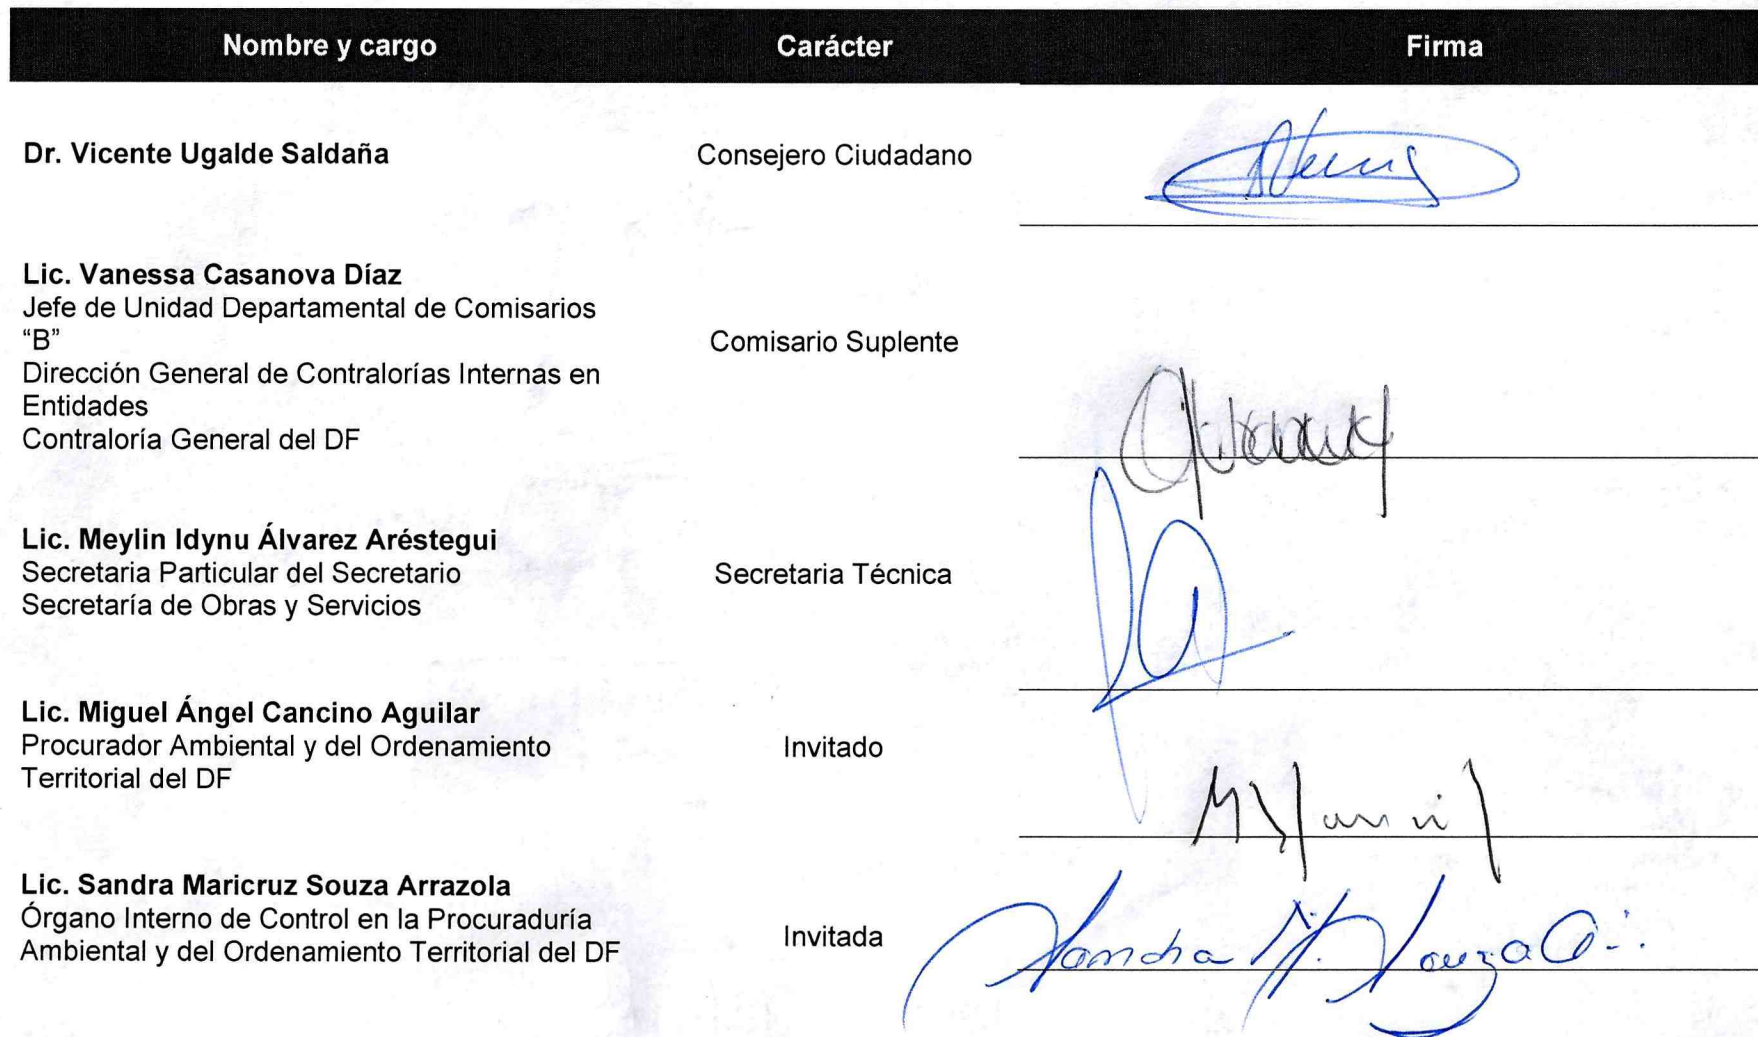 Nombre y cargo Carácter Firma
Dr. Vicente Ugalde Saldaña Consejero Ciudadano
Lic. Vanessa Casanova Díaz
Jefe de Unidad Departamental de Comisarios
“B”
Comisario Suplente
Dirección General de Contralorías Internas en
Entidades
Contraloría General del DF
Lic. Meylin Idynu Álvarez Aréstegui
Secretaria Particular del Secretario Secretaria Técnica
Secretaría de Obras y Servicios
Lic. Miguel Ángel Cancino Aguilar
Procurador Ambiental y del Ordenamiento Invitado
Territorial del DF
Lic. Sandra Maricruz Souza Arrazola
Órgano Interno de Control en la Procuraduría
Ambiental y del Ordenamiento Territorial del DF Invitada
Sandra M. Souza